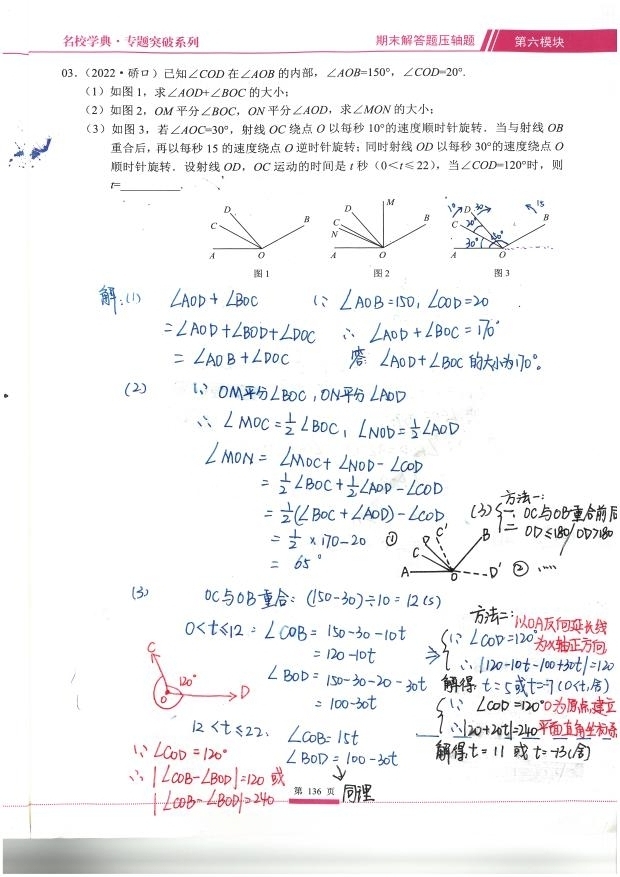 名校学典·专题突破系列
期末解答题压轴题 第六模块
03.（2022·硚口）已知∠COD 在∠AOB 的内部，∠AOB=150°，∠COD=20°.
（1）如图 1，求∠AOD+∠BOC 的大小；
（2）如图 2，OM 平分∠BOC，ON 平分∠AOD，求∠MON 的大小；
（3）如图 3，若∠AOC=30°，射线 OC 绕点 O 以每秒 10°的速度顺时针旋转．当与射线 OB
重合后，再以每秒 15 的速度绕点 O 逆时针旋转；同时射线 OD 以每秒 30°的速度绕点 O
顺时针旋转．设射线 OD，OC 运动的时间是 t 秒（0＜t≤22），当∠COD=120°时，则
t=________.
A C D O B
A N C D M O B
A C D O B 10 30 15 20° 30°
图 1 图 2 图 3
解：(1) ∠AOD + ∠BOC ∵ ∠AOB=150, ∠COD=20
= ∠AOD + ∠BOD + ∠DOC ∴ ∠AOD + ∠BOC = 170°
= ∠AOB + ∠DOC 答 ∠AOD + ∠BOC 的大小为170°。
(2) ∵ OM平分∠BOC , ON平分∠AOD
∴ ∠MOC = 1/2 ∠BOC , ∠NOD = 1/2 ∠AOD
∠MON = ∠MOC + ∠NOD - ∠COD
= 1/2 ∠BOC + 1/2 ∠AOD - ∠COD
= 1/2 (∠BOC + ∠AOD) - ∠COD
= 1/2 × 170 - 20
= 65°
方法一:
(3) 一: OC与OB重合前后
二 OD≤180/OD>180
① A C D C' B O D' ② ……
(3) OC与OB重合: (150-30)÷10 = 12 (s)
0<t≤12: ∠COB = 150-30-10t
= 120-10t
∠BOD = 150-30-20-30t
= 100-30t
12<t≤22. ∠COB = 15t
∠BOD = 100-30t
同理
C 120° O D
∵ ∠COD = 120°
∴ |∠COB-∠BOD|=120 或
|∠COB-∠BOD|=240
方法二: 以OA反向延长线
为x轴正方向
O为原点建立
平面直角坐标系
⇒ ∵ ∠COD=120°
∴ |120-10t-100+30t|=120
解得 t=5或t=-7(0<t,舍)
∵ ∠COD=120°
∴ |20+20t|=240
解得 t=11 或 t=-13(舍)
第 136 页